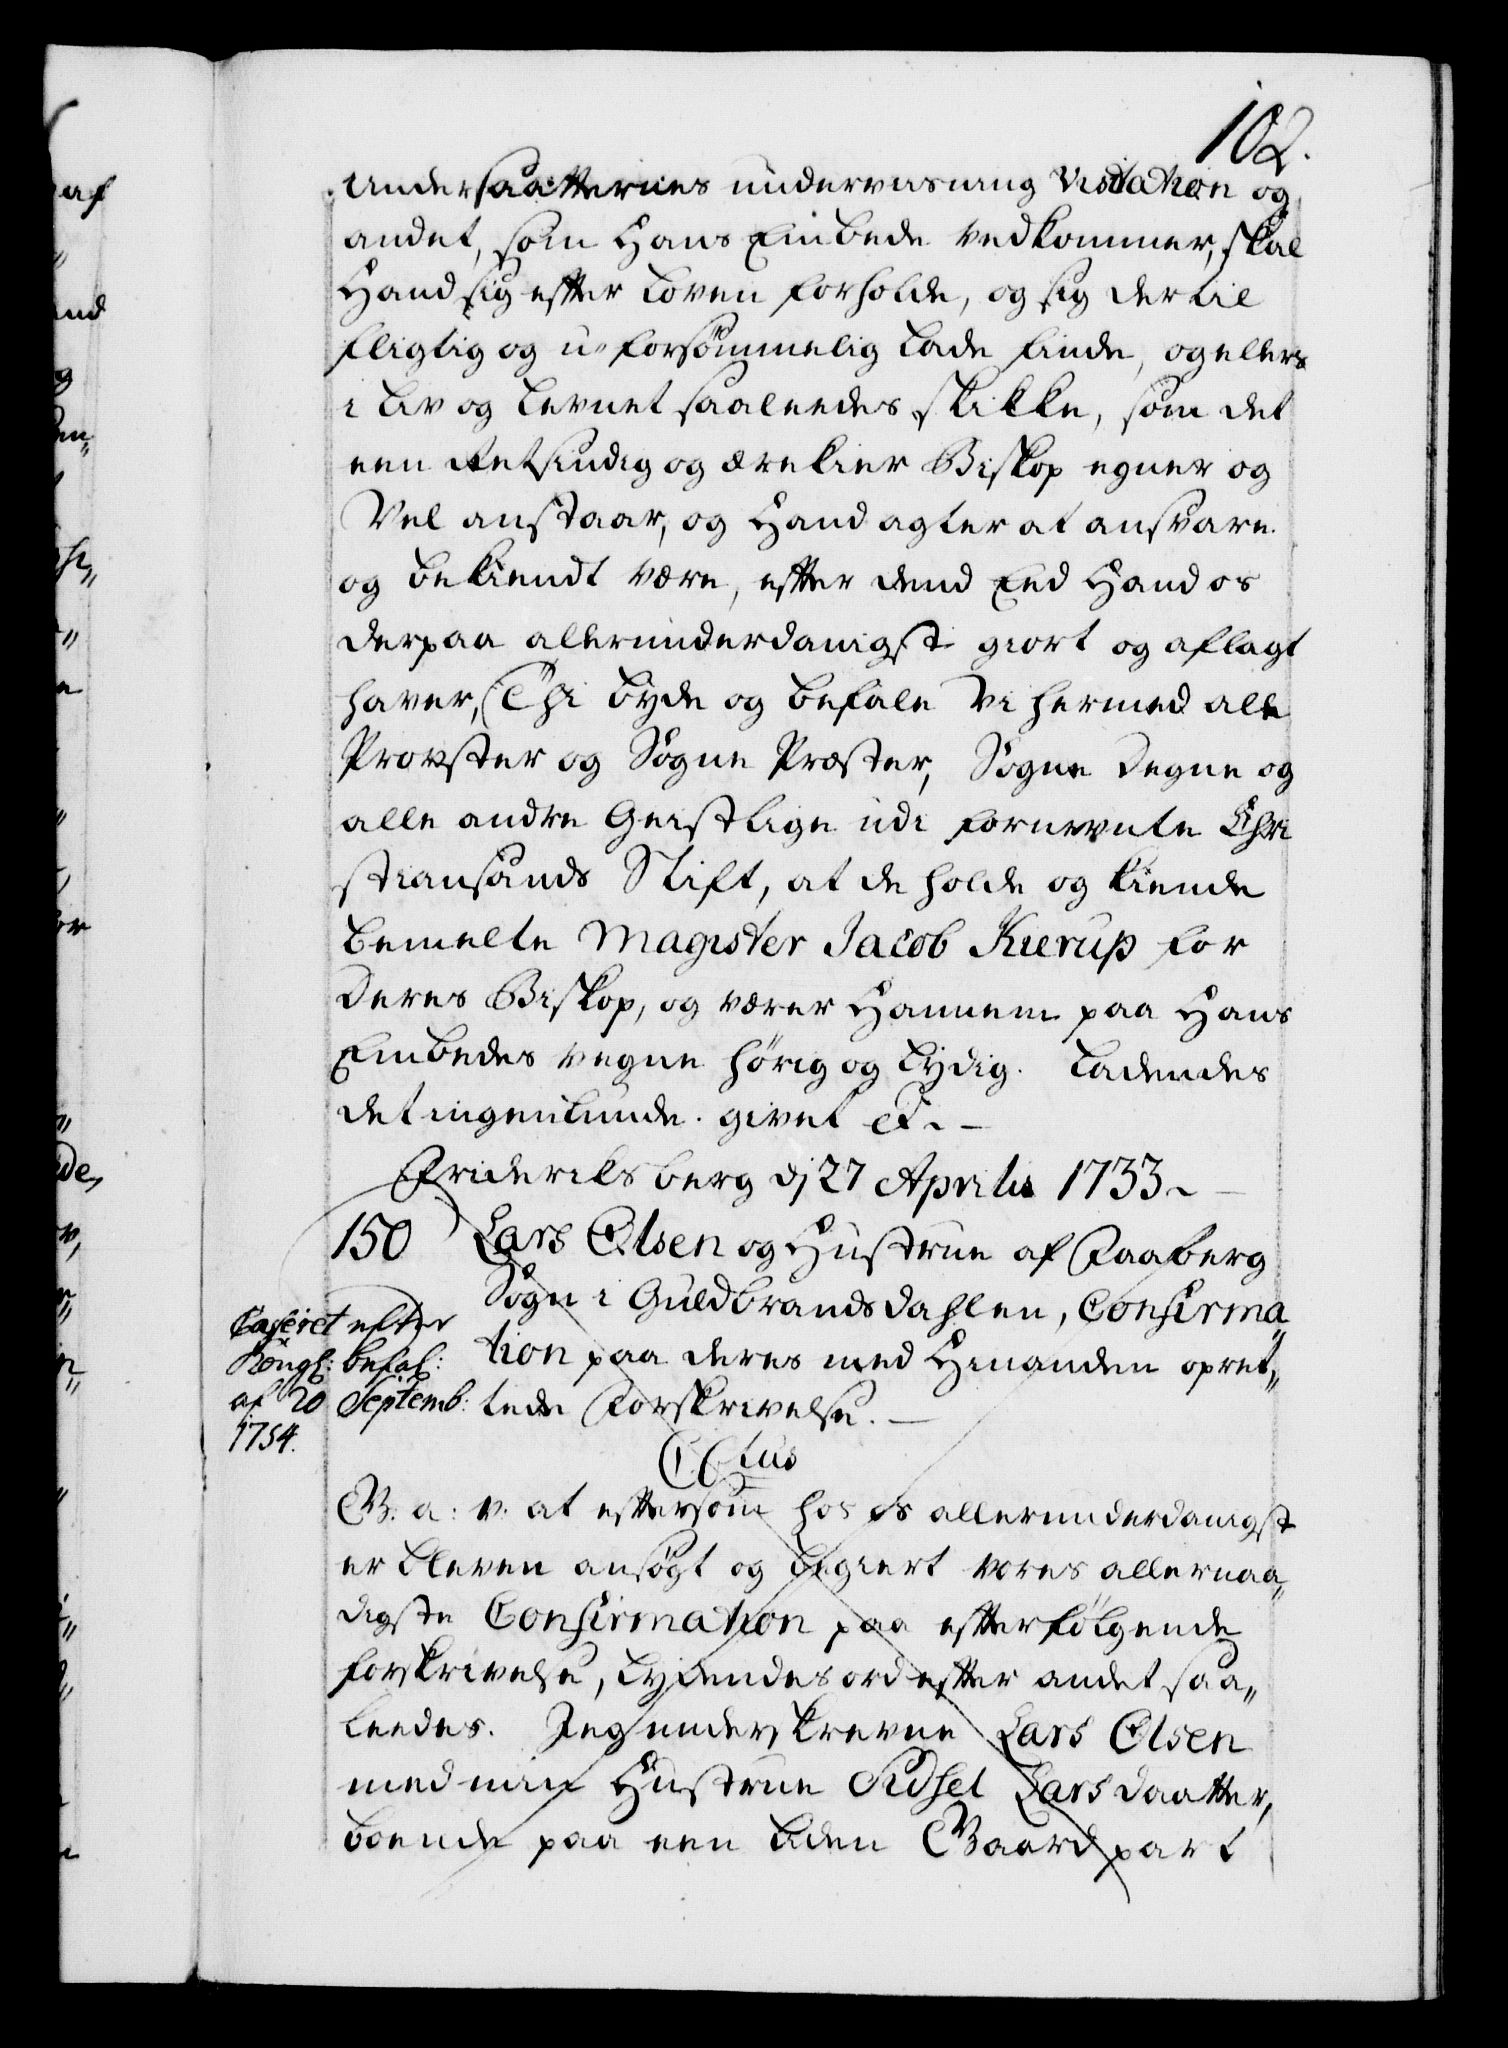 102.
Undersaatternes underviisning Visitation og
andet, som Hans Embede vedkommer, skal
Hand sig efter Loven forholde, og sig dertil
fligtig og u-forsömmelig lade finde, og ellers
i Liv og Levnet saaleedes skikke, som det
een Retsindig og ærekier Biskop egner og
Vel anstaar, og Hand agter at ansvare
og bekiendt være, efter dend Eed Hand os
derpaa allerunderdanigst giort og aflagt
haver, Thi byde og befale Vi hermed alle
Provster og Sogne Præster, Sogne Degne og
alle andre Geistlige udi fornevnte Chri
stiansands Stift, at de holde og kiende
bemelte Magister Jacob Kierup for
Deres Biskop, og være Hannem paa Hans
Embedes vegne hörig og lydig. Ladendes
det ingenlunde. givet etc. –
Frideriksberg dj 27 Aprilis 1733. –
150 Lars Olsen og Hustrue af Faaberg
Sogn i Guldbrandsdahlen, Confirma
tion paa deres med Hinanden opret„
tede Forskrivelse. –
Casseret efter
Kongl: befal:
af 20 Septemb:
1754.
CCtus
G. a: v. at eftersom hos os allerunderdanigst
er bleven ansøgt og begiert vores allernaa„
digste Confirmation paa efterfølgende
forskrivelse, lydendes ord efter andet saa„
leedes. Jeg underskrevne Lars Olsen
med min Hustrue Sidsel Larsdaatter,
boende paa een liden Gaard part